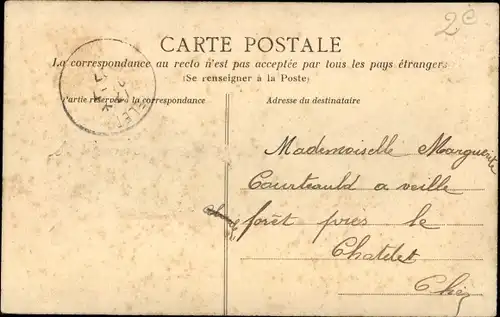 2€
CARTE POSTALE
La correspondance au recto n'est pas acceptée par tous les pays étrangers
(Se renseigner à la Poste)
Partie réservée à la correspondance
Adresse du destinataire
Mademoiselle Marguerite
Courteauld a veille
forêt près le
Chatelet
Cher